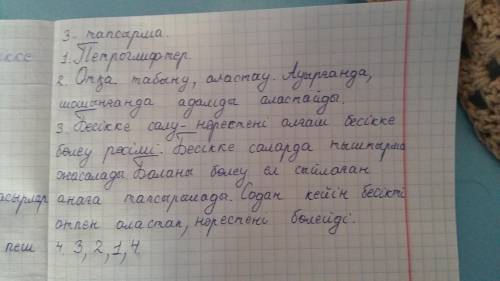 3 - тапсырма.
1. Петроглифтер.
2. Отқа табыну, аластау. Ауырғанда,
шошынғанда адамды аластайды.
3. Бесікке салу - нәрестені алғаш бесікке
бөлеу рәсімі. Бесікке саларда тыштырма
жасалады. Баланы бөлеу ел сыйлаған
анаға тапсырылады. Содан кейін бесікті
отпен аластап, нәрестені бөлейді.
4. 3, 2, 1, 4.